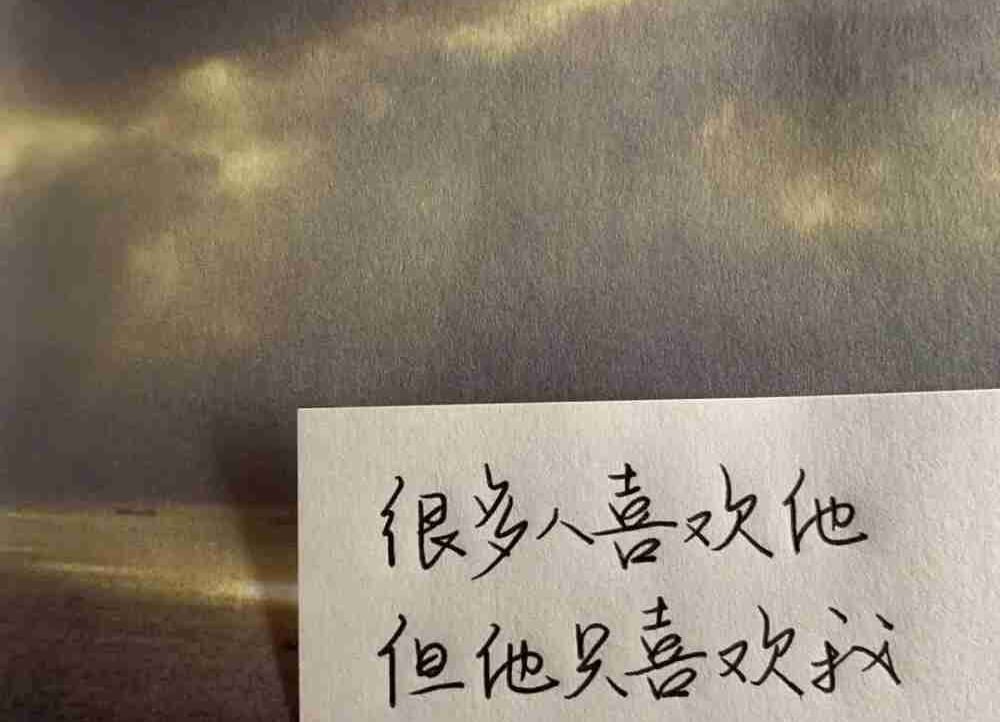 很多人喜欢他
但他只喜欢我